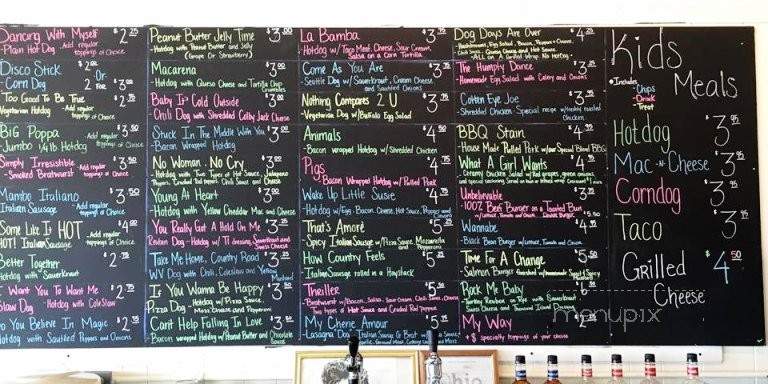 Dancing With Myself $2 25
-Plain Hot Dog -Add regular
toppings of Choice
Disco Stick $2 00
-Corn Dog Or
2 For $3 00
Too Good To Be True $2 75
Vegetarian Hotdog -Add regular
toppings of Choice
BiG Poppa $3 50
-Jumbo 1/4 lb Hotdog -Add regular
toppings of Choice
Simply Irresistible $3 50
-Smoked Bratwurst -Add regular
toppings of Choice
Mambo Italiano $3 50
Italian Sausage -Add regular
toppings of Choice
Some Like It HOT $4 00
HOT! Italian Sausage -Add regular
toppings of Choice
Better Together $2 75
Hotdog with Sauerkraut
I Want You To Want Me $2 75
Slaw Dog -Hotdog with ColeSlaw
Do You Believe In Magic $2 75
Hotdog with Sautéed Peppers and Onions
Peanut Butter Jelly Time $3 00
-Hotdog with Peanut Butter and Jelly
(Grape Or Strawberry)
Macarena $3 00
-Hotdog with Queso Cheese and Tortilla Chip
Crumbles
Baby It's Cold Outside $3 00
-Chili Dog with Shredded Colby Jack Cheese
Stuck In The Middle With You $3 00
-Bacon Wrapped Hotdog
No Woman, No Cry $3
-Hotdog with Two Types of Hot Sauce, Jalapeno
Peppers, Crushed Red peppers, Chili Sauce and Queso
Young At Heart $3 00
-Hotdog with Yellow Cheddar Mac and Cheese
You Really Got A Hold On Me $3
Reuben Dog -Hotdog w/ TI dressing, Sauerkraut and
Swiss Cheese
Take Me Home, Country Road $3
WV Dog with Chili, Coleslaw and Yellow
Mustard
If You Wanna Be Happy $3 50
Pizza Dog -Hotdog w/ Pizza Sauce,
Mozz Cheese and Pepperoni
Can't Help Falling In Love $3 50
Bacon wrapped Hotdog w/ Peanut Butter and Chocolate
Sauce
La Bamba $4
-Hotdog w/ Taco Meat, Cheese, Sour Cream,
Salsa on a Corn Tortilla
Come As You Are $3
Seattle Dog w/ Sauerkraut, Cream Cheese
and Sautéed Onions
Nothing Compares 2 U $3
-Vegetarian Dog w/ Buffalo Egg Salad
Animals $4 50
-Bacon wrapped Hotdog w/ Shredded Chicken
Pigs $4 50
Bacon Wrapped Hotdog w/ Pulled Pork
Wake Up Little Susie $4
-Hotdog w/Egg, Bacon, Cheese, Hot Sauce, Pepper and
That's Amore $5
-Spicy Italian Sausage w/Pizza Sauce, Mozzarella
and Pepperoni
How Country Feels $5
-Italian Sausage rolled in a Haystack
Thriller $5
-Bratwurst w/Bacon, Salsa, Sour Cream, Chili Sauce, Cheese
Two types of Hot Sauce and Crushed Red pepper
My Cherie Amour $5
-Lasagna Dog
Dog Days Are Over $4 25
The Humpty Dance $3
-Homemade Egg Salad with Celery and Onions
Cotton Eye Joe $3
-Shredded Chicken -Special recipe w/freshly roasted
Chicken
BBQ Stain $4
-House Made Pulled Pork w/our Special Blend BBQ
What A Girl Wants $4
-Creamy Chicken Salad w/Red grapes, green onions,
Unbelievable $3
-100% Beef Burger on a Toasted Bun
Wannabe $4
-Black Bean Burger w/Lettuce, Tomato and Onion
Time For A Change $5 50
-Salmon Burger
Rock Me Baby $6
My Way $2
+ $ specialty toppings of your choice
Kids
Meals
*Includes
-Chips
-Drink
-Treat
Hotdog $3 95
Mac-N-Cheese $3 95
Corndog $3 95
Taco $3 95
Grilled
Cheese $4 50
menupix
Ohio